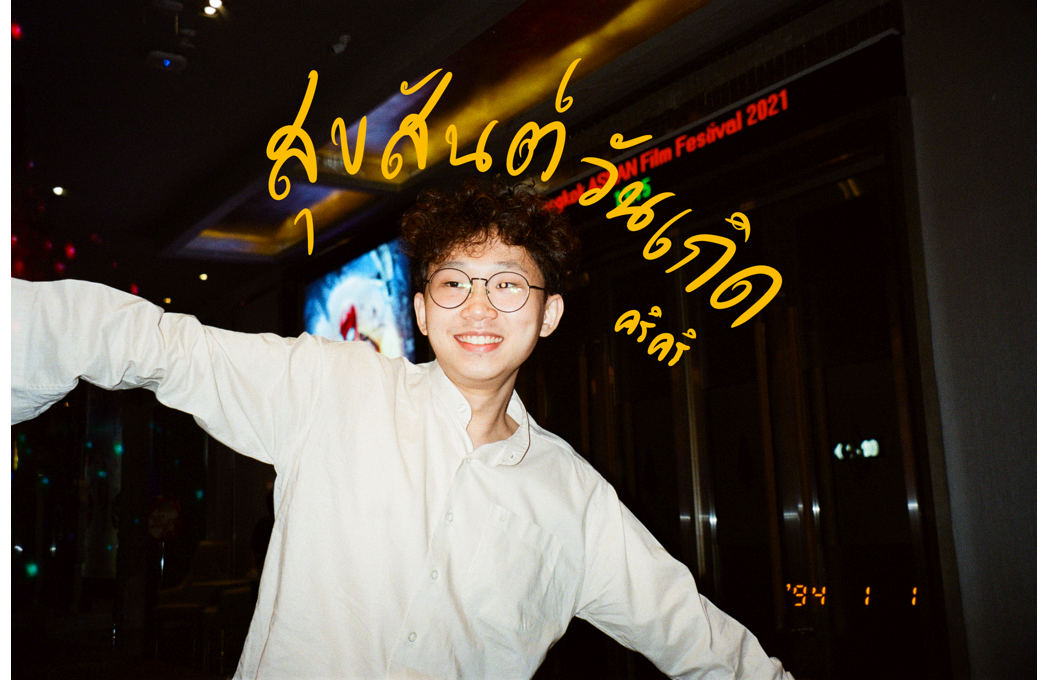 สุขสันต์
วันเกิด
คริคริ
Bangkok ASEAN Film Festival 2021
'94 1 1